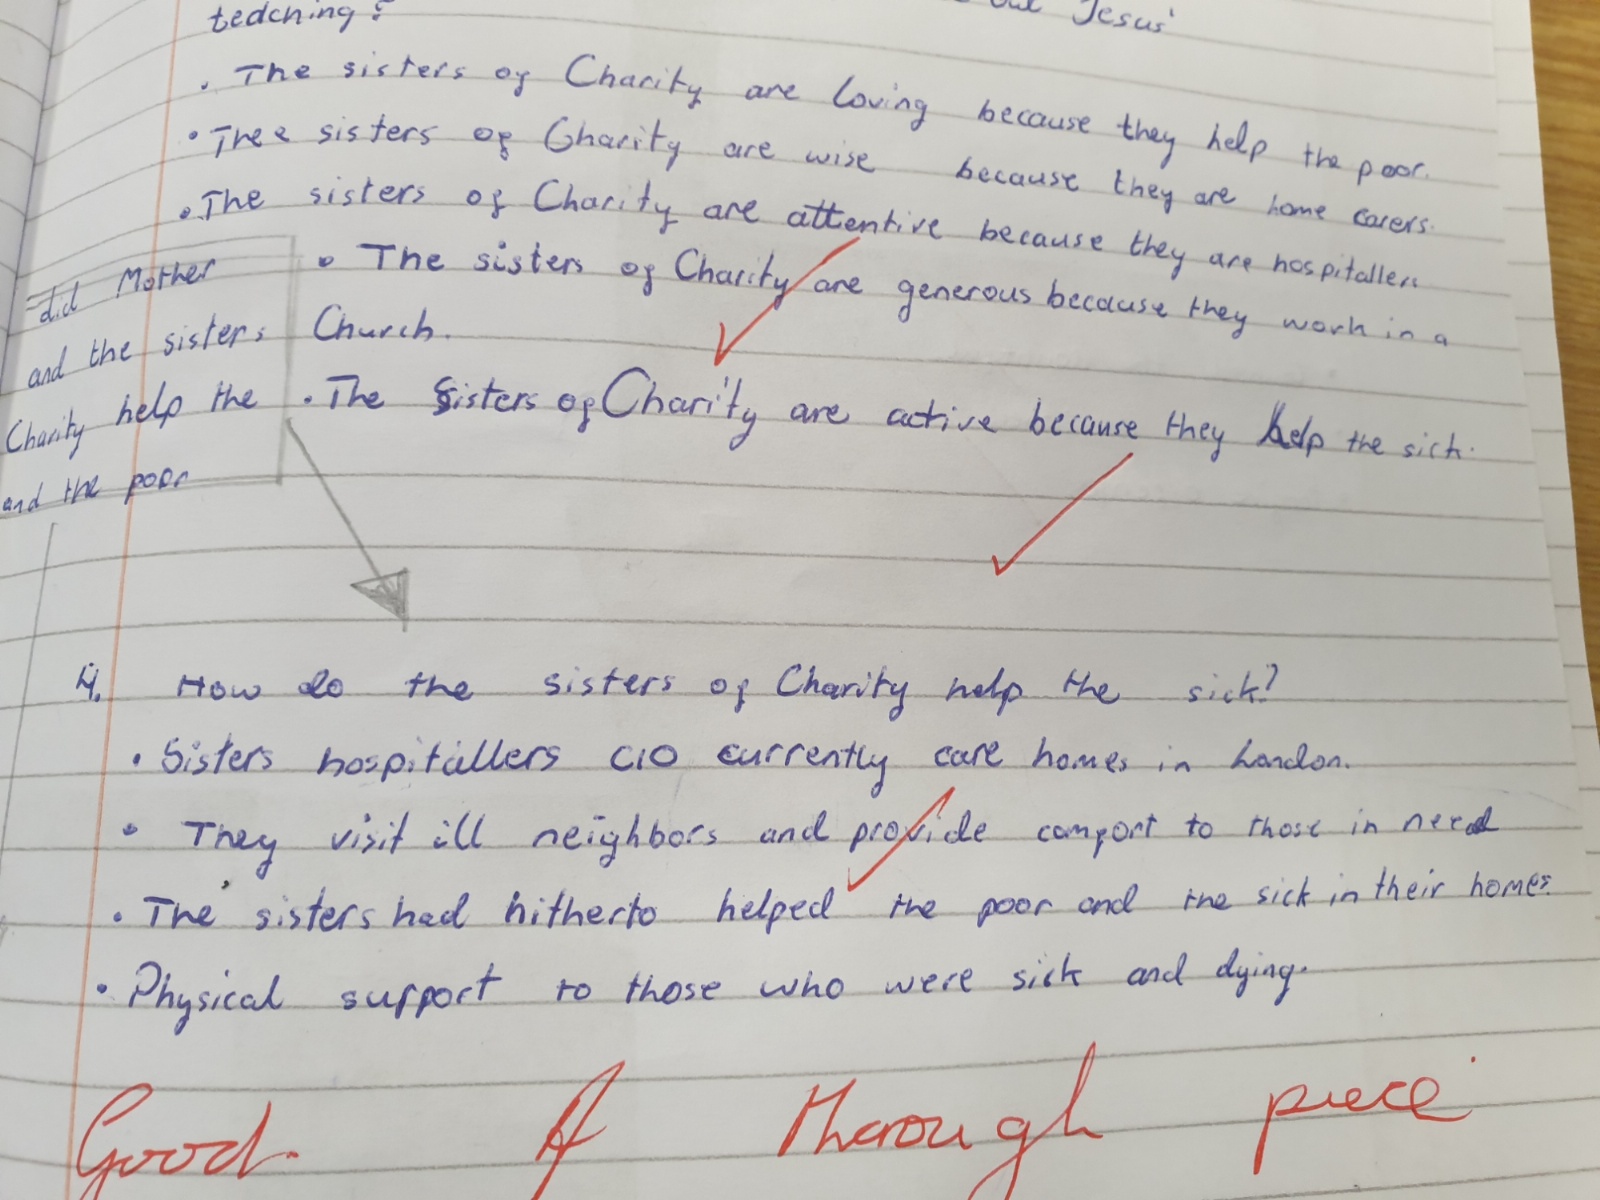 out Jesus'
teaching?
. The sisters of Charity are loving because they help the poor.
• Thee sisters of Charity are wise because they are home carers.
• The sisters of Charity are attentive because they are hospitallers
• The sisters of Charity are generous because they work in a
Church.
• The Sisters of Charity are active because they help the sick.
did Mother
and the sisters
Charity help the
and the poor
4. How do the sisters of Charity help the sick?
• Sisters hospitallers CIO currently care homes in London.
• They visit ill neighbors and provide comfort to those in need
• The sisters had hitherto helped the poor and the sick in their homes.
• Physical support to those who were sick and dying.
Good. A thorough piece